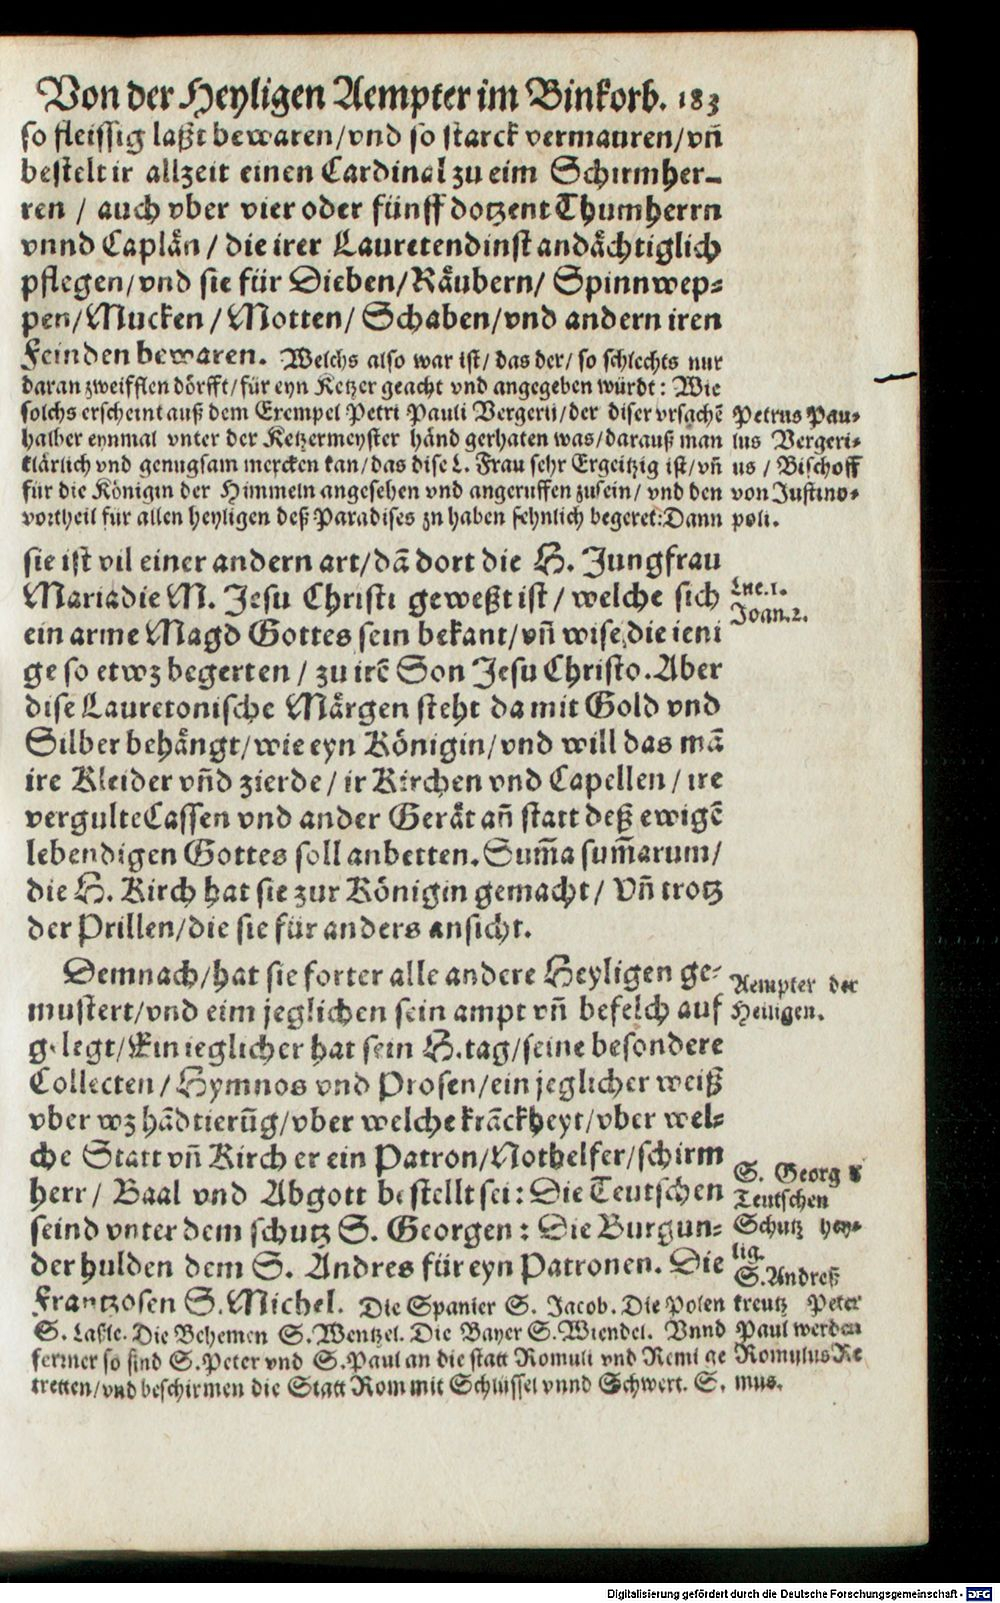 Von der Heyligen Aempter im Binkorb. 183
so fleissig laßt bewaren/vnd so starck vermauren/vn̄
bestelt ir allzeit einen Cardinal zu eim Schirmher-
ren / auch vber vier oder fünff dotzent Thumherrn
vnnd Caplän / die irer Lauretendinst andächtiglich
pflegen/vnd sie für Dieben/Räubern/ Spinnwep-
pen/Mucken /Motten/ Schaben/vnd andern iren
Feinden bewaren. Welchs also war ist/ das der/ so schlechts nur
daran zweifflen dörfft/für eyn Ketzer geacht vnd angegeben würdt: Wie
solchs erscheint auß dem Exempel Petri Pauli Vergerii/der diser vrsachē
halber eynmal vnter der Ketzermeyster händ gerhaten was/darauß man
klärlich vnd genugsam mercken kan/das dise L. Frau sehr Ergeitzig ist/vn̄
für die Königin der Himmeln angesehen vnd angeruffen zusein/ vnd den
vortheil für allen heyligen deß Paradises zu haben sehnlich begeret:Dann
Petrus Pau-
lus Vergeri-
us / Bischoff
von Justino-
poli.
sie ist vil einer andern art/dā dort die H. Jungfrau
Maria die M. Jesu Christi geweßt ist / welche sich
ein arme Magd Gottes sein bekant/vn̄ wise die ieni
ge so etwz begerten / zu irē Son Jesu Christo. Aber
dise Lauretonische Märgen steht da mit Gold vnd
Silber behängt/wie eyn Königin/vnd will das mā
ire Kleider vn̄d zierde / ir Kirchen vnd Capellen / ire
vergulte Cassen vnd ander Gerät an̄ statt deß ewigē
lebendigen Gottes soll anbetten. Sum̄a sum̄arum/
die H. Kirch hat sie zur Königin gemacht / Vn̄ trotz
der Prillen/die sie für anders ansicht.
Luc.1.
Joan.2.
Demnach/hat sie forter alle andere Heyligen ge-
mustert/vnd eim jeglichen sein ampt vn̄ befelch auf
gelegt/Ein ieglicher hat sein H.tag/seine besondere
Collecten / Hymnos vnd Prosen/ein jeglicher weiß
vber wz hādtierūg/vber welche krāckheyt/vber wel-
che Statt vn̄ Kirch er ein Patron/Nothelfer/schirm
herr/ Baal vnd Abgott bestellt sei: Die Teutschen
seind vnter dem schutz S. Georgen : Die Burgun-
der hulden dem S. Andres für eyn Patronen. Die
Frantzosen S. Michel. Die Spanier S. Jacob. Die Polen
S. Laßle. Die Behemen S. Wentzel. Die Bayer S. Wiendel. Vnnd
ferner so sind S. Peter vnd S. Paul an die statt Romuli vnd Remi ge
tretten/vnd beschirmen die Statt Rom mit Schlüssel vnnd Schwert. S.
Aempter der
Heiligen.
S. Georg
Teutschen
Schutz hey-
lig.
S. Andreß
kreutz Peter
Paul werden
Romulus Re
mus.
Digitalisierung gefördert durch die Deutsche Forschungsgemeinschaft - DFG